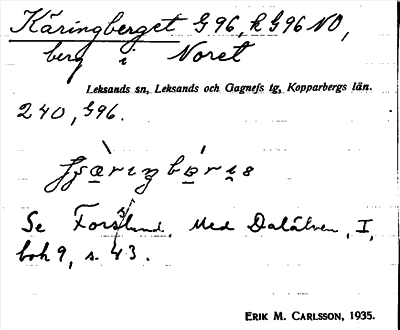 Käringberget G96, k G96 NO,
berg i Noret
Leksands sn, Leksands och Gagnefs tg, Kopparbergs län.
240, G96.
Se Forsslund, Med Dalälven, I,
bok 9, s. 43.
ERIK M. CARLSSON, 1935.